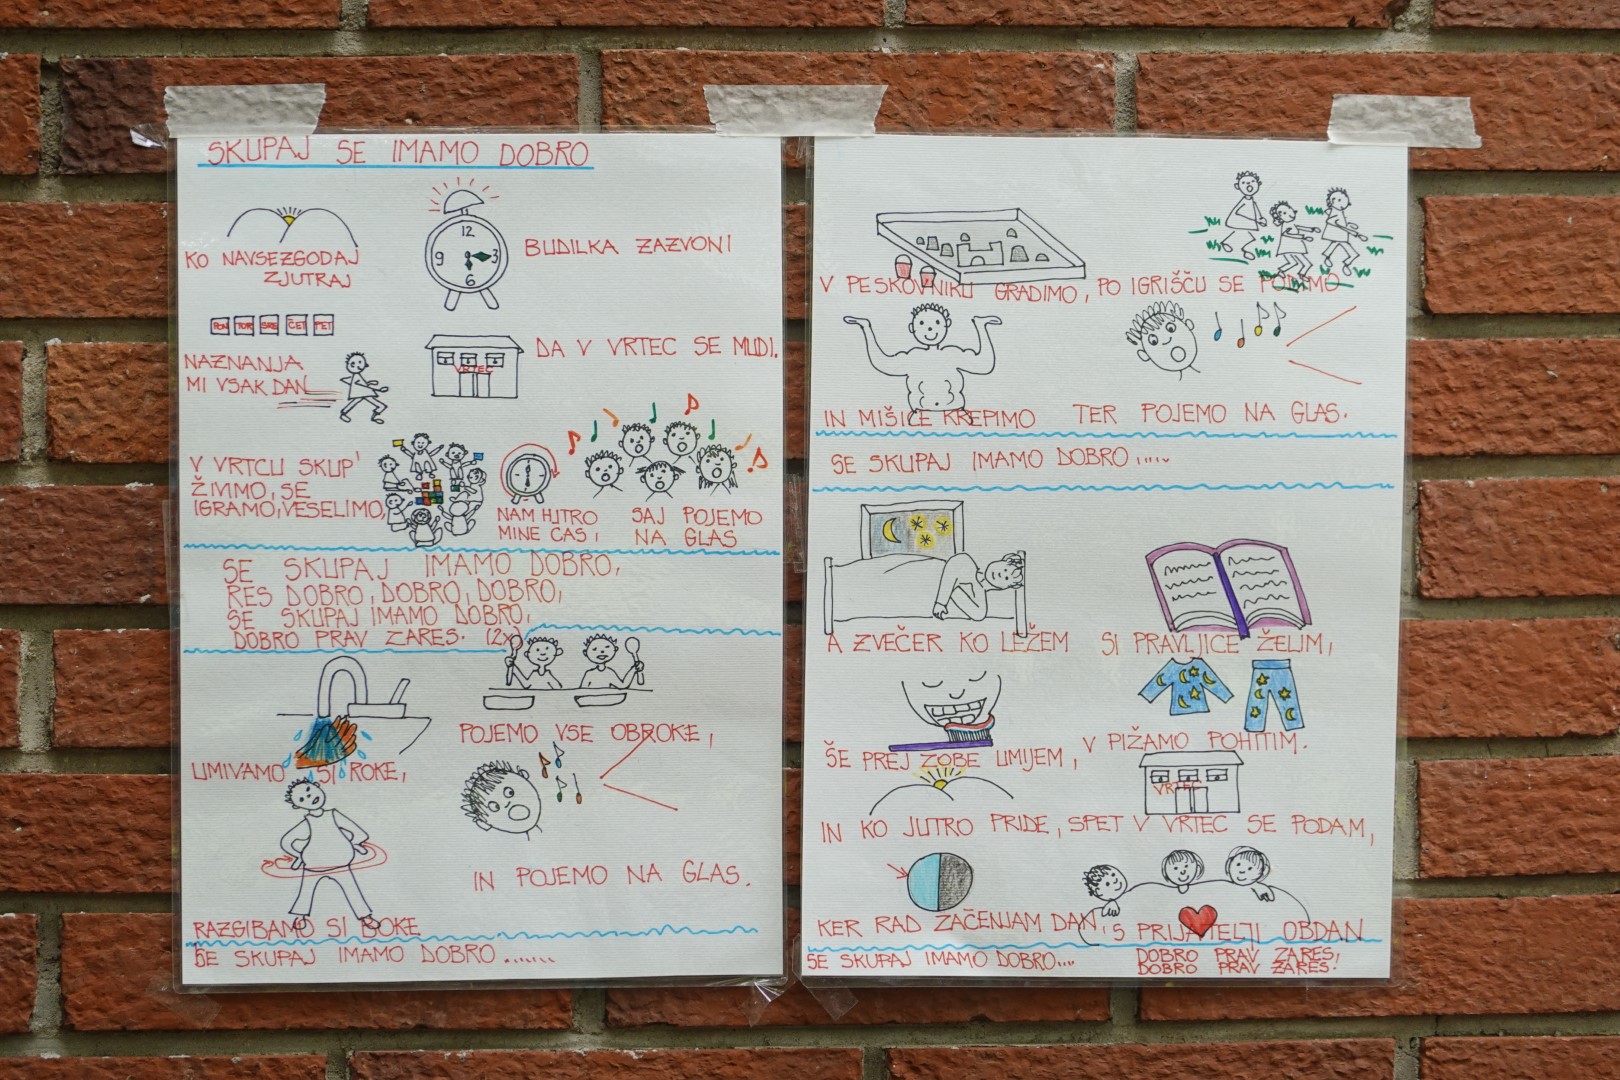 SKUPAJ SE IMAMO DOBRO
KO NAVSEZGODAJ
ZJUTRAJ
12
9 3
6
BUDILKA ZAZVONI
PON TOR SRE ČET PET
NAZNANJA
MI VSAK DAN
VRTEC
DA V VRTEC SE MUDI.
V VRTCU SKUP'
ŽIVIMO, SE
IGRAMO, VESELIMO,
NAM HITRO
MINE ČAS,
SAJ POJEMO
NA GLAS
SE SKUPAJ IMAMO DOBRO,
RES DOBRO, DOBRO, DOBRO,
SE SKUPAJ IMAMO DOBRO,
DOBRO PRAV ZARES. (2x)
UMIVAMO SI ROKE,
POJEMO VSE OBROKE,
RAZGIBAMO SI BOKE
IN POJEMO NA GLAS.
SE SKUPAJ IMAMO DOBRO.......
V PESKOVNIKU GRADIMO, PO IGRIŠČU SE PODIMO
IN MIŠICE KREPIMO TER POJEMO NA GLAS.
SE SKUPAJ IMAMO DOBRO.....
A ZVEČER KO LEŽEM SI PRAVLJICE ŽELIM,
ŠE PREJ ZOBE UMIJEM, V PIŽAMO POHITIM.
VRTEC
IN KO JUTRO PRIDE, SPET V VRTEC SE PODAM,
KER RAD ZAČENJAM DAN, S PRIJATELJI OBDAN
SE SKUPAJ IMAMO DOBRO....
DOBRO PRAV ZARES,
DOBRO PRAV ZARES!